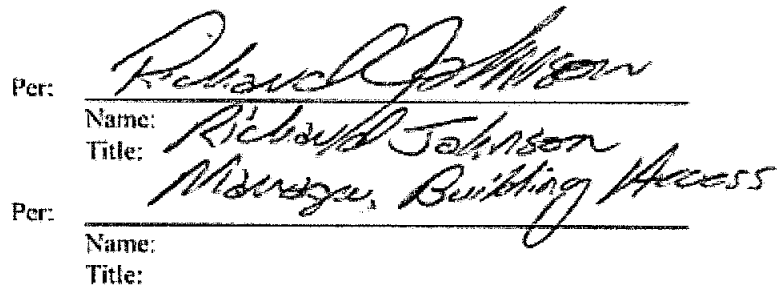 Per: Richard Johnson
Name: Richard Johnson
Title: Manager, Building Access
Per:
Name:
Title: